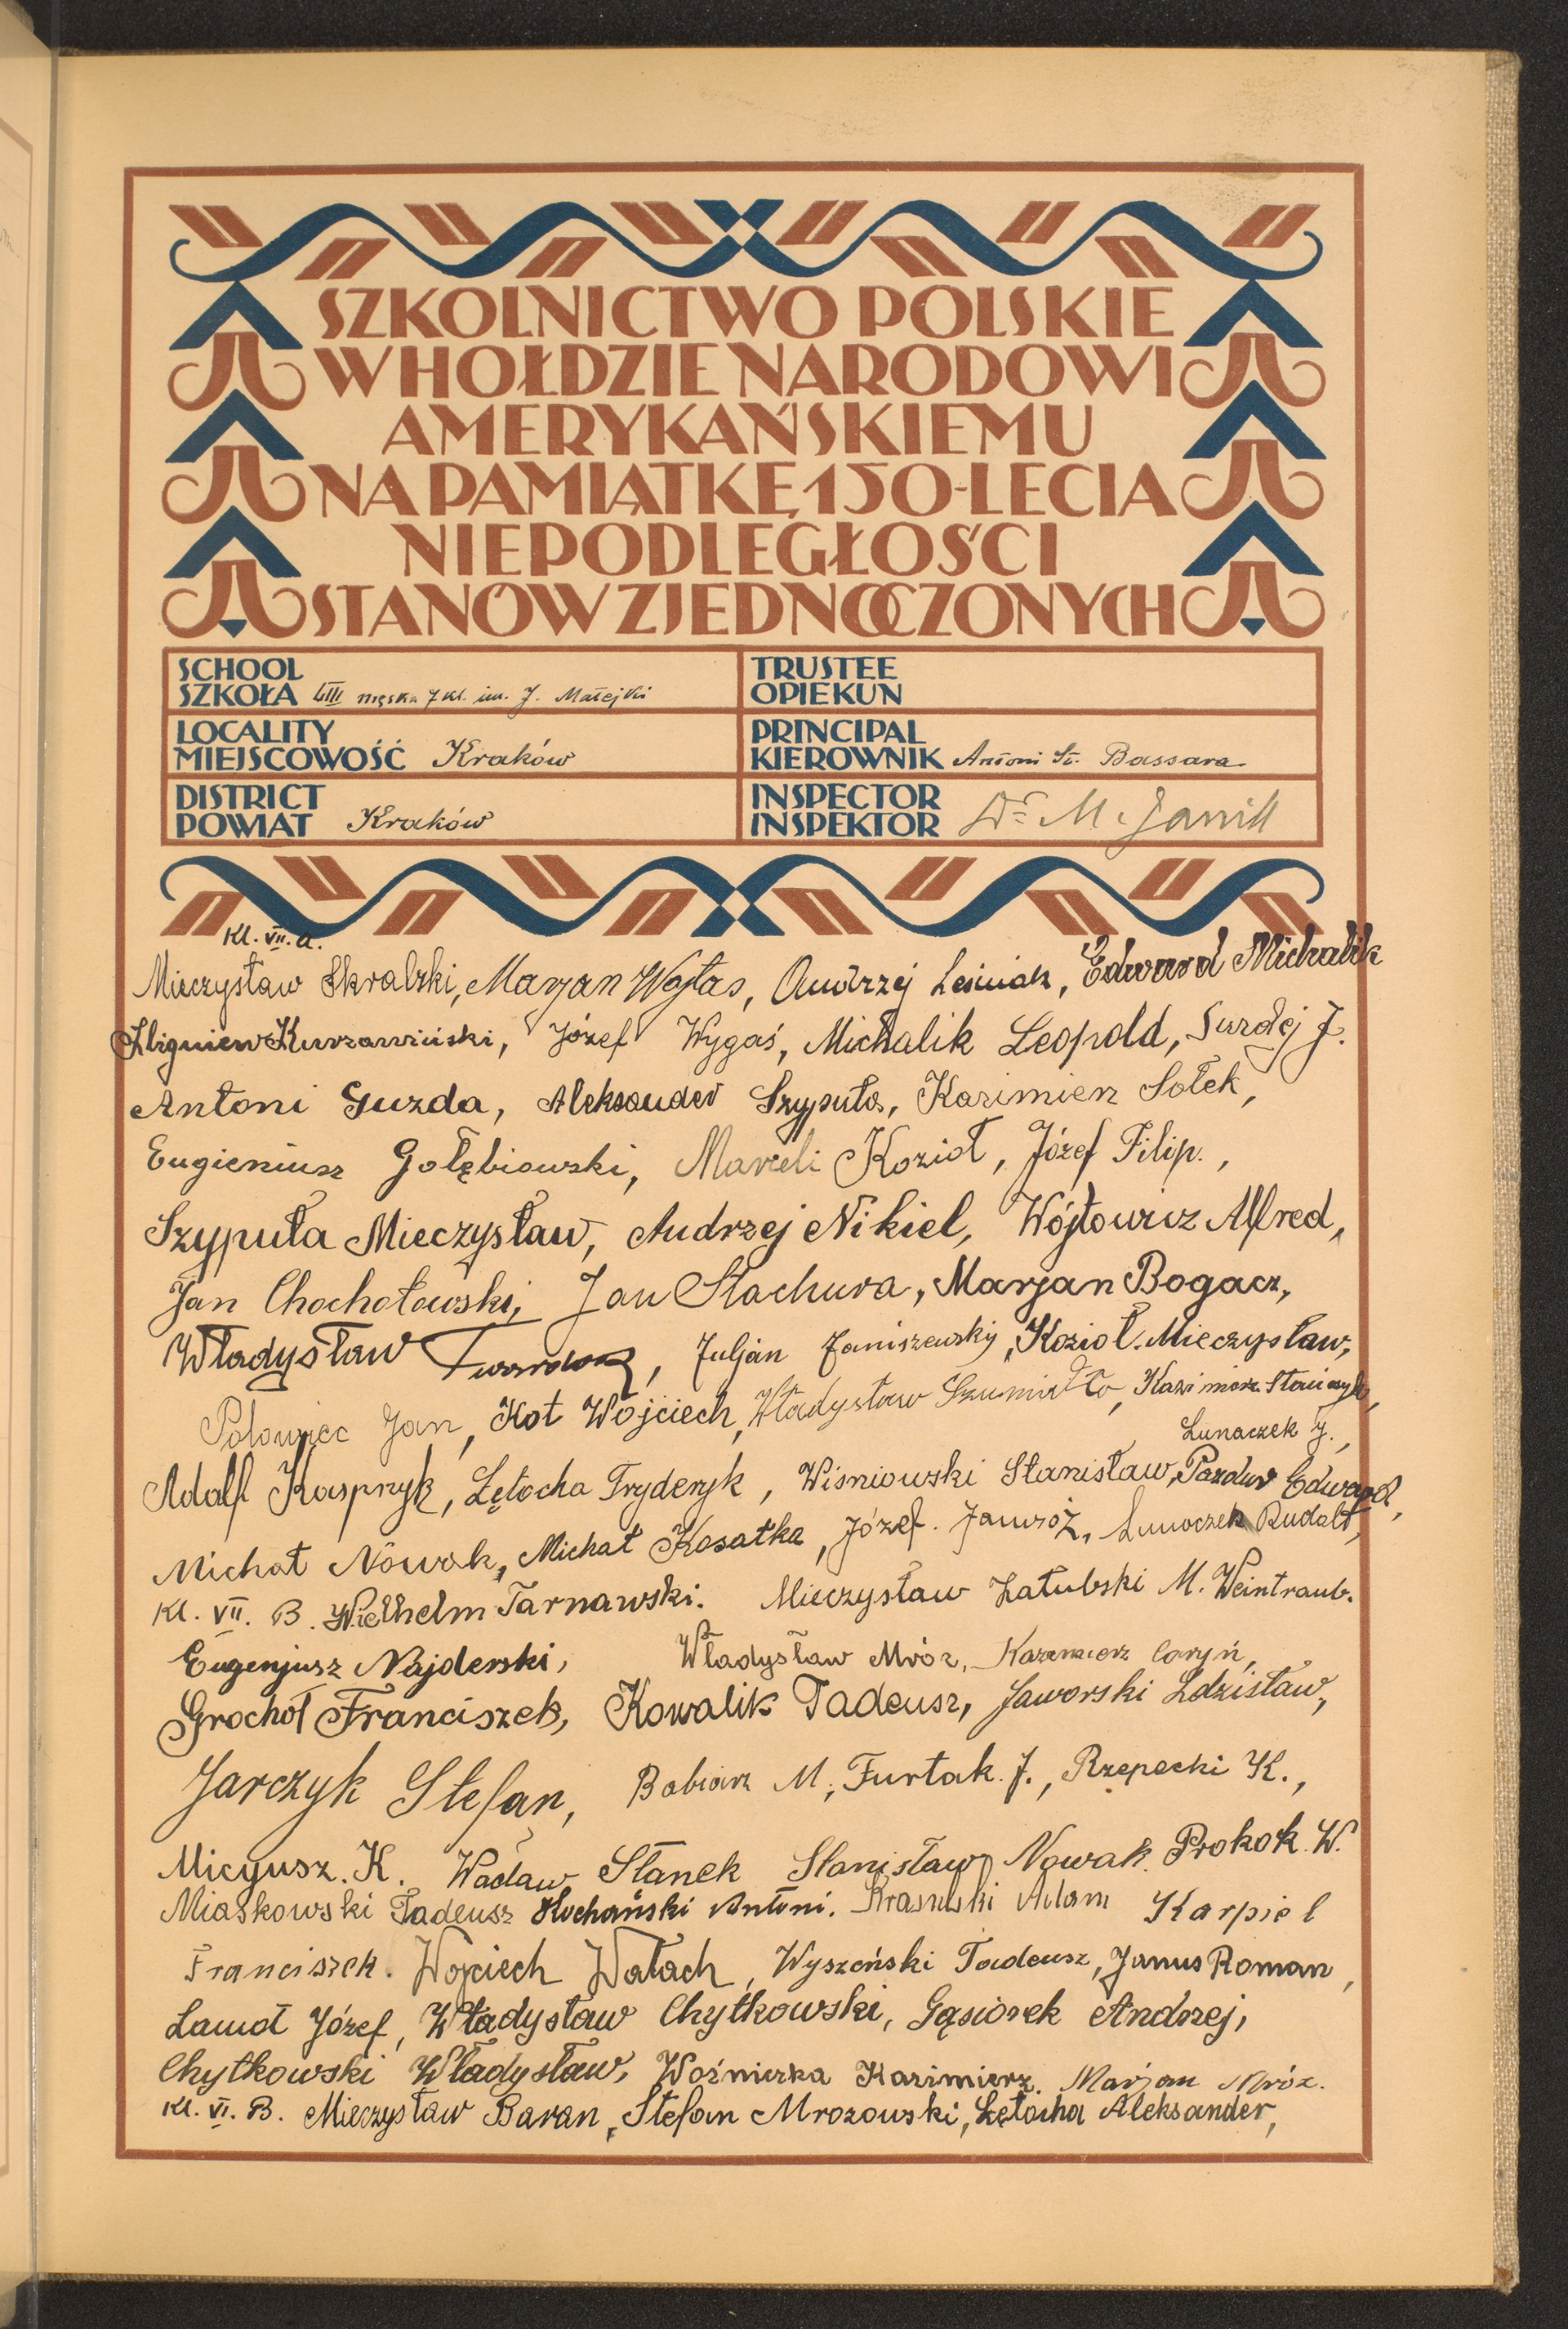 SZKOLNICTWO POLSKIE
W HOŁDZIE NARODOWI
AMERYKAŃSKIEMU
NA PAMIĄTKĘ 150-LECIA
NIEPODLEGŁOŚCI
STANÓW ZJEDNOCZONYCH
SCHOOL
SZKOŁA LIII męska 7 kl. im. J. Matejki
TRUSTEE
OPIEKUN
LOCALITY
MIEJSCOWOŚĆ Kraków
PRINCIPAL
KIEROWNIK Antoni St. Bassara
DISTRICT
POWIAT Kraków
INSPECTOR
INSPEKTOR Dr M. Janik
Kl. VII. a.
Mieczysław Skralski, Marjan Wojtas, Andrzej Leśniak, Edward Michalik
Zbigniew Kurzawiński, Józef Wygaś, Michalik Leopold, Surdej J.
Antoni Guzda, Aleksander Szypuła, Kazimierz Sołek,
Eugieniusz Gołębiowski, Marceli Kozioł, Józef Filip.,
Szypuła Mieczysław, Andrzej Nikiel, Wójtowicz Alfred,
Jan Chochołowski, Jan Stachura, Marjan Bogacz,
Władysław, Juljan Janiszewski, Kozioł Mieczysław,
Połowiec Jan, Kot Wojciech, Władysław Szumidło, Kazimierz Stańczyk,
Lunaczek J.,
Adolf Kasprzyk, Łętocha Fryderyk, Wiśniowski Stanisław, Pazdur Edward,
Michał Nowak, Michał Kosałka, Józef Jamróz, Lunaczek Rudolf,
Kl. VII. B. Wielhelm Tarnawski. Mieczysław Załubski M. Weintraub.
Eugenjusz Najderski, Władysław Mróz, Kazimierz Caryń,
Grochół Franciszek, Kowalik Tadeusz, Jaworski Zdzisław,
Jarczyk Stefan, Babiarz M., Furtak J., Rzepecki K.,
Micyusz. K. Wacław Stanek Stanisław Nowak Prokok. W.
Miaskowski Tadeusz Kochański Antoni. Adam Karpiel
Franciszek. Wojciech Wałach, Wyszeński Tadeusz, Janus Roman,
Józef, Władysław Chytkowski, Gąsiorek Andrzej,
Chytkowski Władysław, Woźniczka Kazimierz. Marjan Mróz.
Kl. VI. B. Mieczysław Baran, Stefan Mrozowski, Łętocha Aleksander,